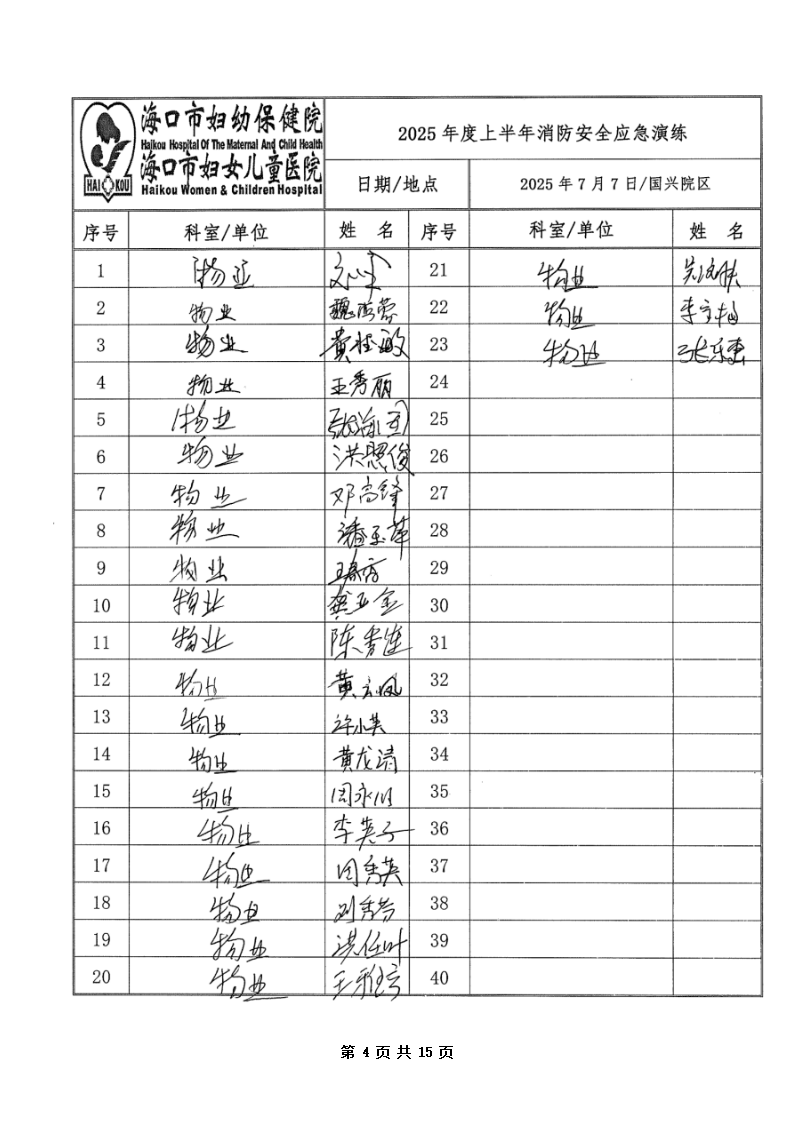 海口市妇幼保健院
Haikou Hospital Of The Maternal And Child Health
海口市妇女儿童医院
Haikou Women & Children Hospital
HAI KOU
2025 年度上半年消防安全应急演练
日期/地点 2025 年 7 月 7 日/国兴院区
序号 科室/单位 姓 名 序号 科室/单位 姓 名
1 物业 21 物业
2 物业 22 物业
3 物业 23 物业 张乐惠
4 物业 王秀丽 24
5 物业 25
6 物业 洪照俊 26
7 物业 邓高锋 27
8 物业 潘玉苹 28
9 物业 29
10 物业 30
11 物业 陈秀莲 31
12 物业 黄 凤 32
13 物业 许小英 33
14 物业 黄龙清 34
15 物业 周永川 35
16 物业 李英子 36
17 物业 周秀英 37
18 物业 刘秀芳 38
19 物业 洪任叶 39
20 物业 王雅 40
第 4 页 共 15 页